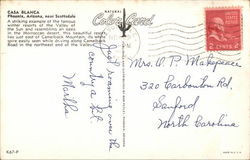 CASA BLANCA
Phoenix, Arizona, near Scottsdale
A striking example of the famous
winter resorts of the Valley of
the Sun and resembling an oasis
in the Moroccan desert, this beautiful resort,
lies just east of Camelback Mountain, its white
spire easily seen while driving along Camelback
Road in the northeast end of the Valley.
NATIONAL
Color Card
2 CENTS 2
Just roaming over the
country a bit
Martha
Mrs. O. P. Makepeace
320 Carbonton Rd.
Sanford
North Carolina
K67-P